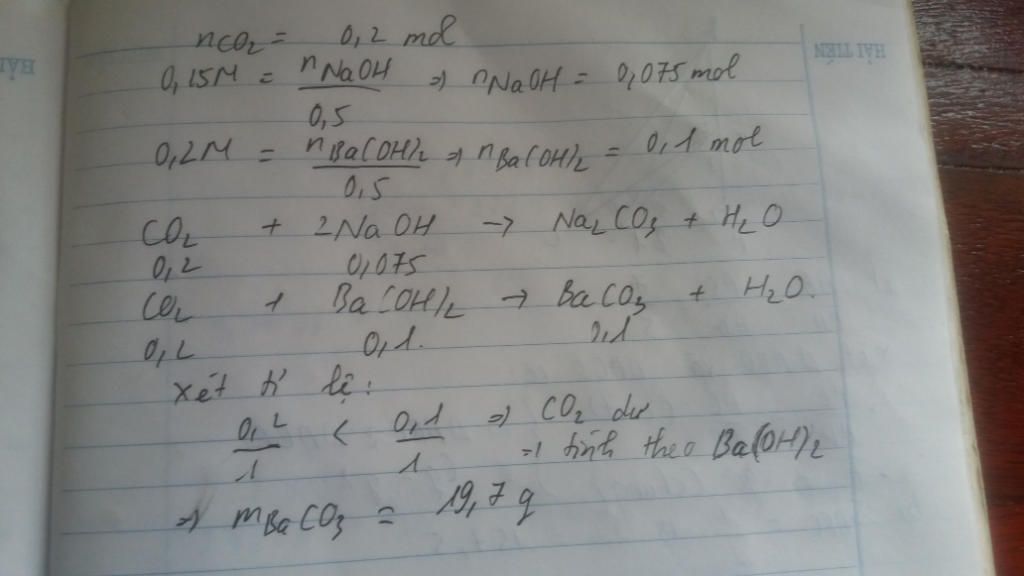 nCO₂ = 0,2 mol
0,15M = nNaOH / 0,5 ⇒ nNaOH = 0,075 mol
0,2M = nBa(OH)₂ / 0,5 ⇒ nBa(OH)₂ = 0,1 mol
CO₂ + 2NaOH → Na₂CO₃ + H₂O
0,2 0,075
CO₂ + Ba(OH)₂ → BaCO₃ + H₂O.
0,2 0,1. 0,1
Xét tỉ lệ:
0,2 / 1 < 0,1 / 1 ⇒ CO₂ dư
⇒ tính theo Ba(OH)₂
⇒ mBaCO₃ = 19,7 g
HẢI TIẾN
HẢI